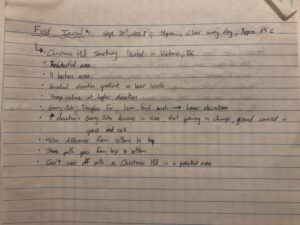 Field Journal #1: Sept 30th, 2023, 1pm, Clear sunny day, Approx 24°C
↳ Christmas Hill Sanctuary located in Victoria, BC
• Residential area
• 11 hectare area
• Gradual elevation gradient on lower levels
• Steep incline at higher elevation
• Garry Oak, Douglas Fir, lower level bush → lower elevations
• ↑ elevation: Garry Oaks decrease in size start growing in clumps, ground covered in
grass and rock
• difference from bottom to top
• Stone path goes from top to bottom
• Can't veer off path as Christmas Hill is a protected area